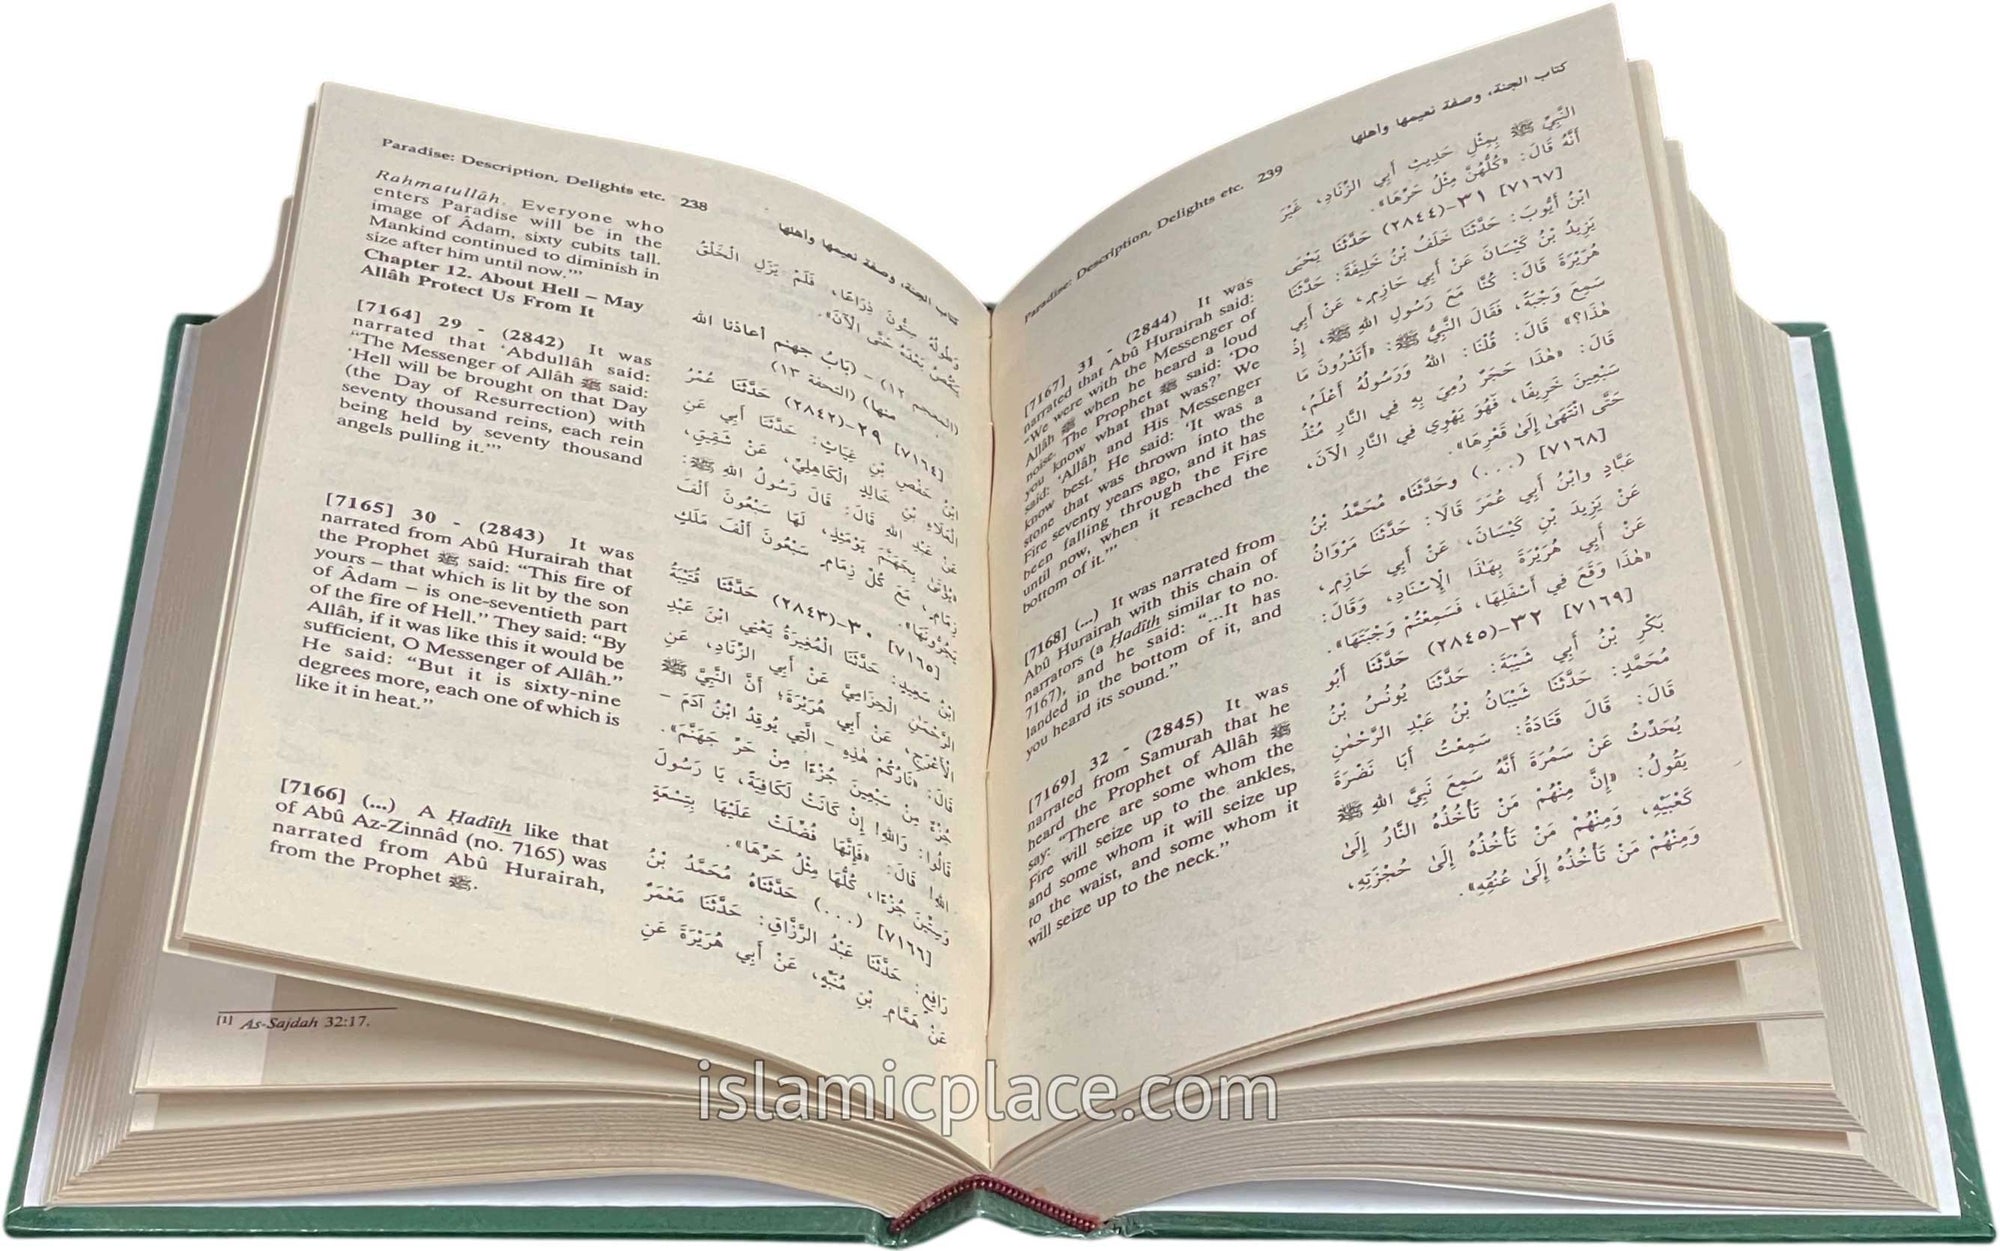 Paradise: Description, Delights etc. 238
كتاب الجنة، وصفة نعيمها وأهلها
Rahmatullâh. Everyone who
enters Paradise will be in the
image of Âdam, sixty cubits tall.
Mankind continued to diminish in
size after him until now.'"
Chapter 12. About Hell – May
Allâh Protect Us From It
[7164] 29 - (2842) It was
narrated that 'Abdullâh said:
"The Messenger of Allâh ﷺ said:
'Hell will be brought on that Day
(the Day of Resurrection) with
seventy thousand reins, each rein
being held by seventy thousand
angels pulling it.'"
[7165] 30 - (2843) It was
narrated from Abû Hurairah that
the Prophet ﷺ said: "This fire of
yours – that which is lit by the son
of Âdam – is one-seventieth part
of the fire of Hell." They said: "By
Allâh, if it was like this it would be
sufficient, O Messenger of Allâh."
He said: "But it is sixty-nine
degrees more, each one of which is
like it in heat."
[7166] (...) A Hadîth like that
of Abû Az-Zinnâd (no. 7165) was
narrated from Abû Hurairah,
from the Prophet ﷺ.
وَطُولُهُ سِتُّونَ ذِرَاعًا، فَلَمْ يَزَلِ الْخَلْقُ
يَنْقُصُ بَعْدَهُ حَتَّى الْآنَ».
(المعجم ١٢) - (بَابُ جهنم أعاذنا الله
منها) (التحفة ١٣)
[٧١٦٤] ٢٩-(٢٨٤٢) حَدَّثَنَا عُمَرُ
ابْنُ حَفْصِ بْنِ غِيَاثٍ: حَدَّثَنَا أَبِي عَنِ
الْعَلَاءِ بْنِ خَالِدٍ الْكَاهِلِيِّ، عَنْ شَقِيقٍ،
عَنْ عَبْدِ اللهِ قَالَ: قَالَ رَسُولُ اللهِ ﷺ:
«يُؤْتَىٰ بِجَهَنَّمَ يَوْمَئِذٍ، لَهَا سَبْعُونَ أَلْفَ
زِمَامٍ، مَعَ كُلِّ زِمَامٍ سَبْعُونَ أَلْفَ مَلَكٍ
يَجُرُّونَهَا».
[٧١٦٥] ٣٠-(٢٨٤٣) حَدَّثَنَا قُتَيْبَةُ
ابْنُ سَعِيدٍ: حَدَّثَنَا الْمُغِيرَةُ يَعْنِي ابْنَ عَبْدِ
الرَّحْمٰنِ الْحِزَامِيَّ عَنْ أَبِي الزِّنَادِ، عَنِ
الْأَعْرَجِ، عَنْ أَبِي هُرَيْرَةَ؛ أَنَّ النَّبِيَّ ﷺ
قَالَ: «نَارُكُمْ هٰذِهِ - الَّتِي يُوقِدُ ابْنُ آدَمَ -
جُزْءٌ مِنْ سَبْعِينَ جُزْءًا مِنْ حَرِّ جَهَنَّمَ».
قَالُوا: وَاللهِ! إِنْ كَانَتْ لَكَافِيَةً، يَا رَسُولَ
اللهِ! قَالَ: «فَإِنَّهَا فُضِّلَتْ عَلَيْهَا بِتِسْعَةٍ
وَسِتِّينَ جُزْءًا، كُلُّهَا مِثْلُ حَرِّهَا».
[٧١٦٦] (...) حَدَّثَنَاهُ مُحَمَّدُ بْنُ
رَافِعٍ: حَدَّثَنَا عَبْدُ الرَّزَّاقِ: حَدَّثَنَا مَعْمَرٌ
عَنْ هَمَّامِ بْنِ مُنَبِّهٍ، عَنْ أَبِي هُرَيْرَةَ عَنِ
Paradise: Description, Delights etc. 239
كتاب الجنة، وصفة نعيمها وأهلها
[7167] 31 - (2844) It was
narrated that Abû Hurairah said:
"We were with the Messenger of
Allâh ﷺ when he heard a loud
noise. The Prophet ﷺ said: 'Do
you know what that was?' We
said: 'Allâh and His Messenger
know best.' He said: 'It was a
stone that was thrown into the
Fire seventy years ago, and it has
been falling through the Fire
until now, when it reached the
bottom of it.'"
[7168] (...) It was narrated from
Abû Hurairah with this chain of
narrators (a Hadîth similar to no.
7167), and he said: "...It has
landed in the bottom of it, and
you heard its sound."
[7169] 32 - (2845) It was
narrated from Samurah that he
heard the Prophet of Allâh ﷺ
say: "There are some whom the
Fire will seize up to the ankles,
and some whom it will seize up
to the waist, and some whom it
will seize up to the neck."
النَّبِيِّ ﷺ بِمِثْلِ حَدِيثِ أَبِي الزِّنَادِ، غَيْرَ
أَنَّهُ قَالَ: «كُلُّهُنَّ مِثْلُ حَرِّهَا».
[٧١٦٧] ٣١-(٢٨٤٤) حَدَّثَنَا يَحْيَى
ابْنُ أَيُّوبَ: حَدَّثَنَا خَلَفُ بْنُ خَلِيفَةَ: حَدَّثَنَا
يَزِيدُ بْنُ كَيْسَانَ عَنْ أَبِي حَازِمٍ، عَنْ أَبِي
هُرَيْرَةَ قَالَ: كُنَّا مَعَ رَسُولِ اللهِ ﷺ، إِذْ
سَمِعَ وَجْبَةً، فَقَالَ النَّبِيُّ ﷺ: «أَتَدْرُونَ مَا
هٰذَا؟» قَالَ: قُلْنَا: اللهُ وَرَسُولُهُ أَعْلَمُ،
قَالَ: «هٰذَا حَجَرٌ رُمِيَ بِهِ فِي النَّارِ مُنْذُ
سَبْعِينَ خَرِيفًا، فَهُوَ يَهْوِي فِي النَّارِ الْآنَ،
حَتَّى انْتَهَىٰ إِلَىٰ قَعْرِهَا».
[٧١٦٨] (...) وَحَدَّثَنَاه مُحَمَّدُ بْنُ
عَبَّادٍ وَابْنُ أَبِي عُمَرَ قَالَا: حَدَّثَنَا مَرْوَانُ
عَنْ يَزِيدَ بْنِ كَيْسَانَ، عَنْ أَبِي حَازِمٍ،
عَنْ أَبِي هُرَيْرَةَ بِهٰذَا الْإِسْنَادِ، وَقَالَ:
«هٰذَا وَقَعَ فِي أَسْفَلِهَا، فَسَمِعْتُمْ وَجْبَتَهَا».
[٧١٦٩] ٣٢-(٢٨٤٥) حَدَّثَنَا أَبُو
بَكْرِ بْنُ أَبِي شَيْبَةَ: حَدَّثَنَا يُونُسُ بْنُ
مُحَمَّدٍ: حَدَّثَنَا شَيْبَانُ بْنُ عَبْدِ الرَّحْمٰنِ
قَالَ: قَالَ قَتَادَةُ: سَمِعْتُ أَبَا نَضْرَةَ
يُحَدِّثُ عَنْ سَمُرَةَ أَنَّهُ سَمِعَ نَبِيَّ اللهِ ﷺ
يَقُولُ: «إِنَّ مِنْهُمْ مَنْ تَأْخُذُهُ النَّارُ إِلَىٰ
كَعْبَيْهِ، وَمِنْهُمْ مَنْ تَأْخُذُهُ إِلَىٰ حُجْزَتِهِ،
وَمِنْهُمْ مَنْ تَأْخُذُهُ إِلَىٰ عُنُقِهِ».
[1] As-Sajdah 32:17.
islamicplace.com